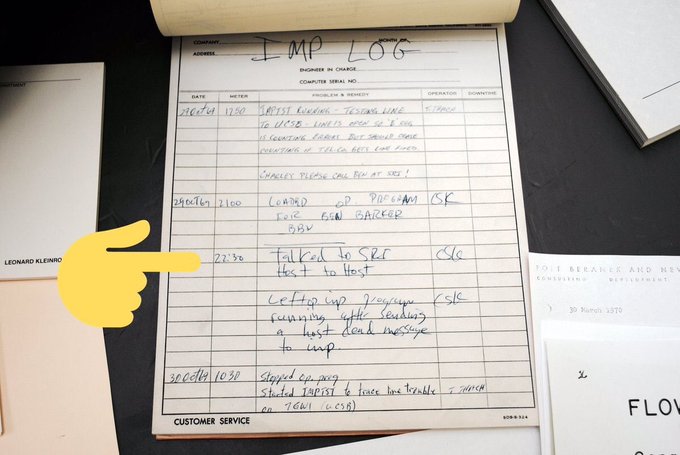 COMPANY
MONTH OF
ADDRESS
IMP LOG
ENGINEER IN CHARGE
COMPUTER SERIAL NO.
DATE METER PROBLEM & REMEDY OPERATOR DOWNTIME
29Oct69 1750 IMPTST RUNNING - TESTING LINE T. THACH
TO UCSB - LINE IS OPEN SO
IS COUNTING ERRORS BUT SHOULD CEASE
COUNTING IF TELCO. GETS LINE FIXED.
CHARLEY PLEASE CALL BEN AT SRI!
29OCT69 2100 LOADED OP. PROGRAM CSK
FOR BEN BARKER
BBN
22:30 Talked to SRI CSK
Host to Host
Left op. imp program CSK
running after sending
a host dead message
to imp.
30Oct69 1030 Stopped op. prog
Started IMPTST to trace line trouble T. THACH
on (UCSB)
CUSTOMER SERVICE
609-S-324
LEONARD KLEINRO
BERANEK AND NEW
CONSULTING DEVELOPMENT
30 March 1970
FLOW